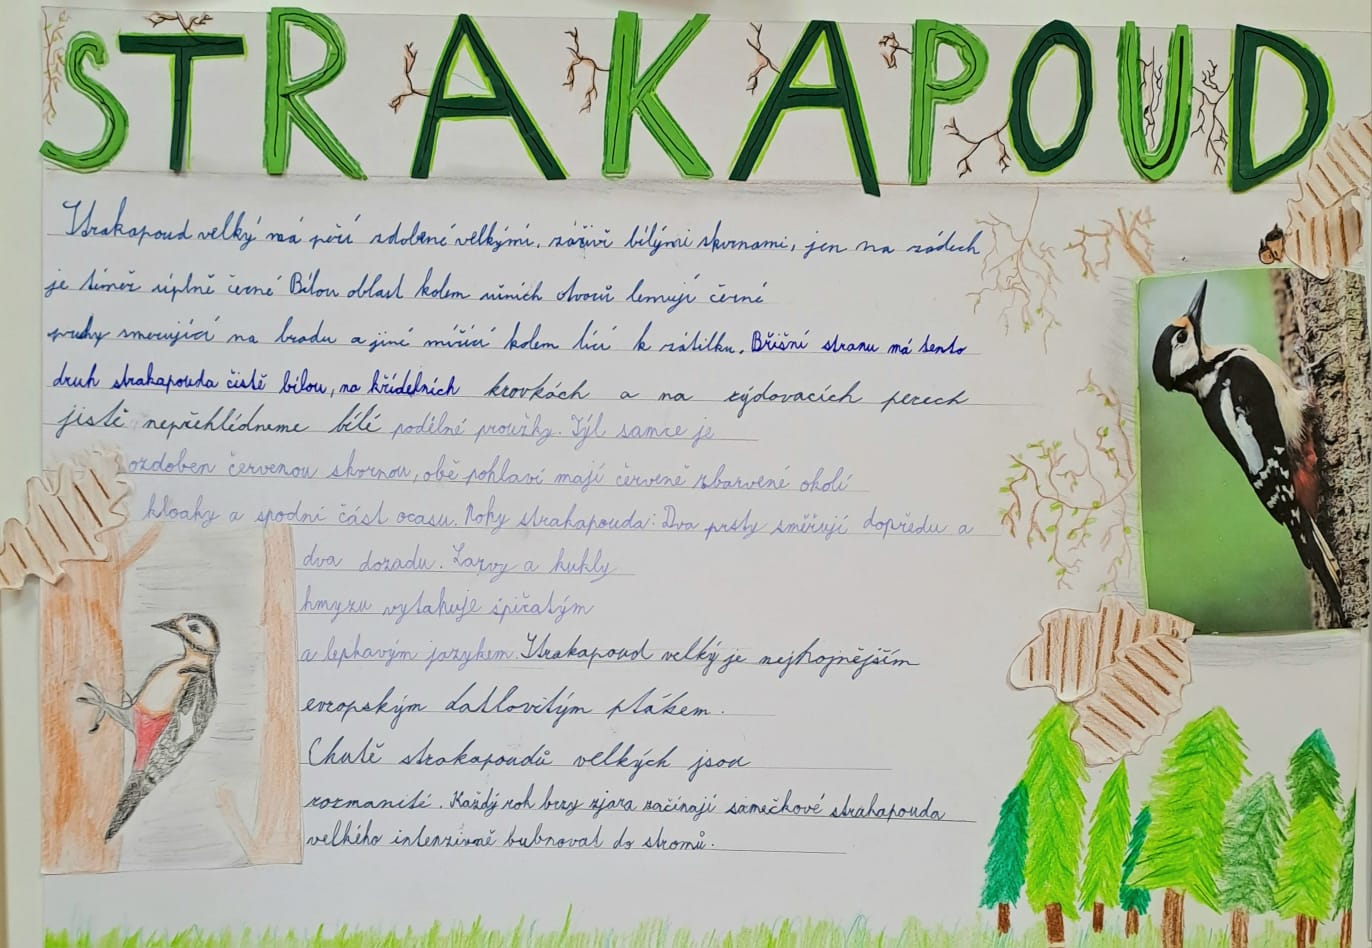 STRAKAPOUD
Strakapoud velký má peří zdobené velkými, zářivě bílými skvrnami, jen na zádech
je téměř úplně černé Bílou oblast kolem ušních otvorů lemují černé
pruhy směrující na bradu a jiné mířící kolem lící k zátilku. Břišní stranu má tento
druh strakapouda čistě bílou, na křídelních krovkách a na rýdovacích perech
jistě nepřehlédneme bílé podélné proužky. Týl samce je
ozdoben červenou skvrnou, obě pohlaví mají červeně zbarvené okolí
kloaky a spodní část ocasu. Nohy strakapouda: Dva prsty směřují dopředu a
dva dozadu. Larvy a kukly
hmyzu vytahuje špičatým
a lepkavým jazykem. Strakapoud velký je nejhojnějším
evropským datlovitým ptákem.
Chutě strakapoudů velkých jsou
rozmanité. Každý rok brzy zjara začínají samečkové strakapouda
velkého intenzivně bubnovat do stromů.